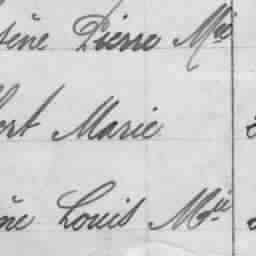 sène Pierre Mie
ort Marie
ne Louis Mie